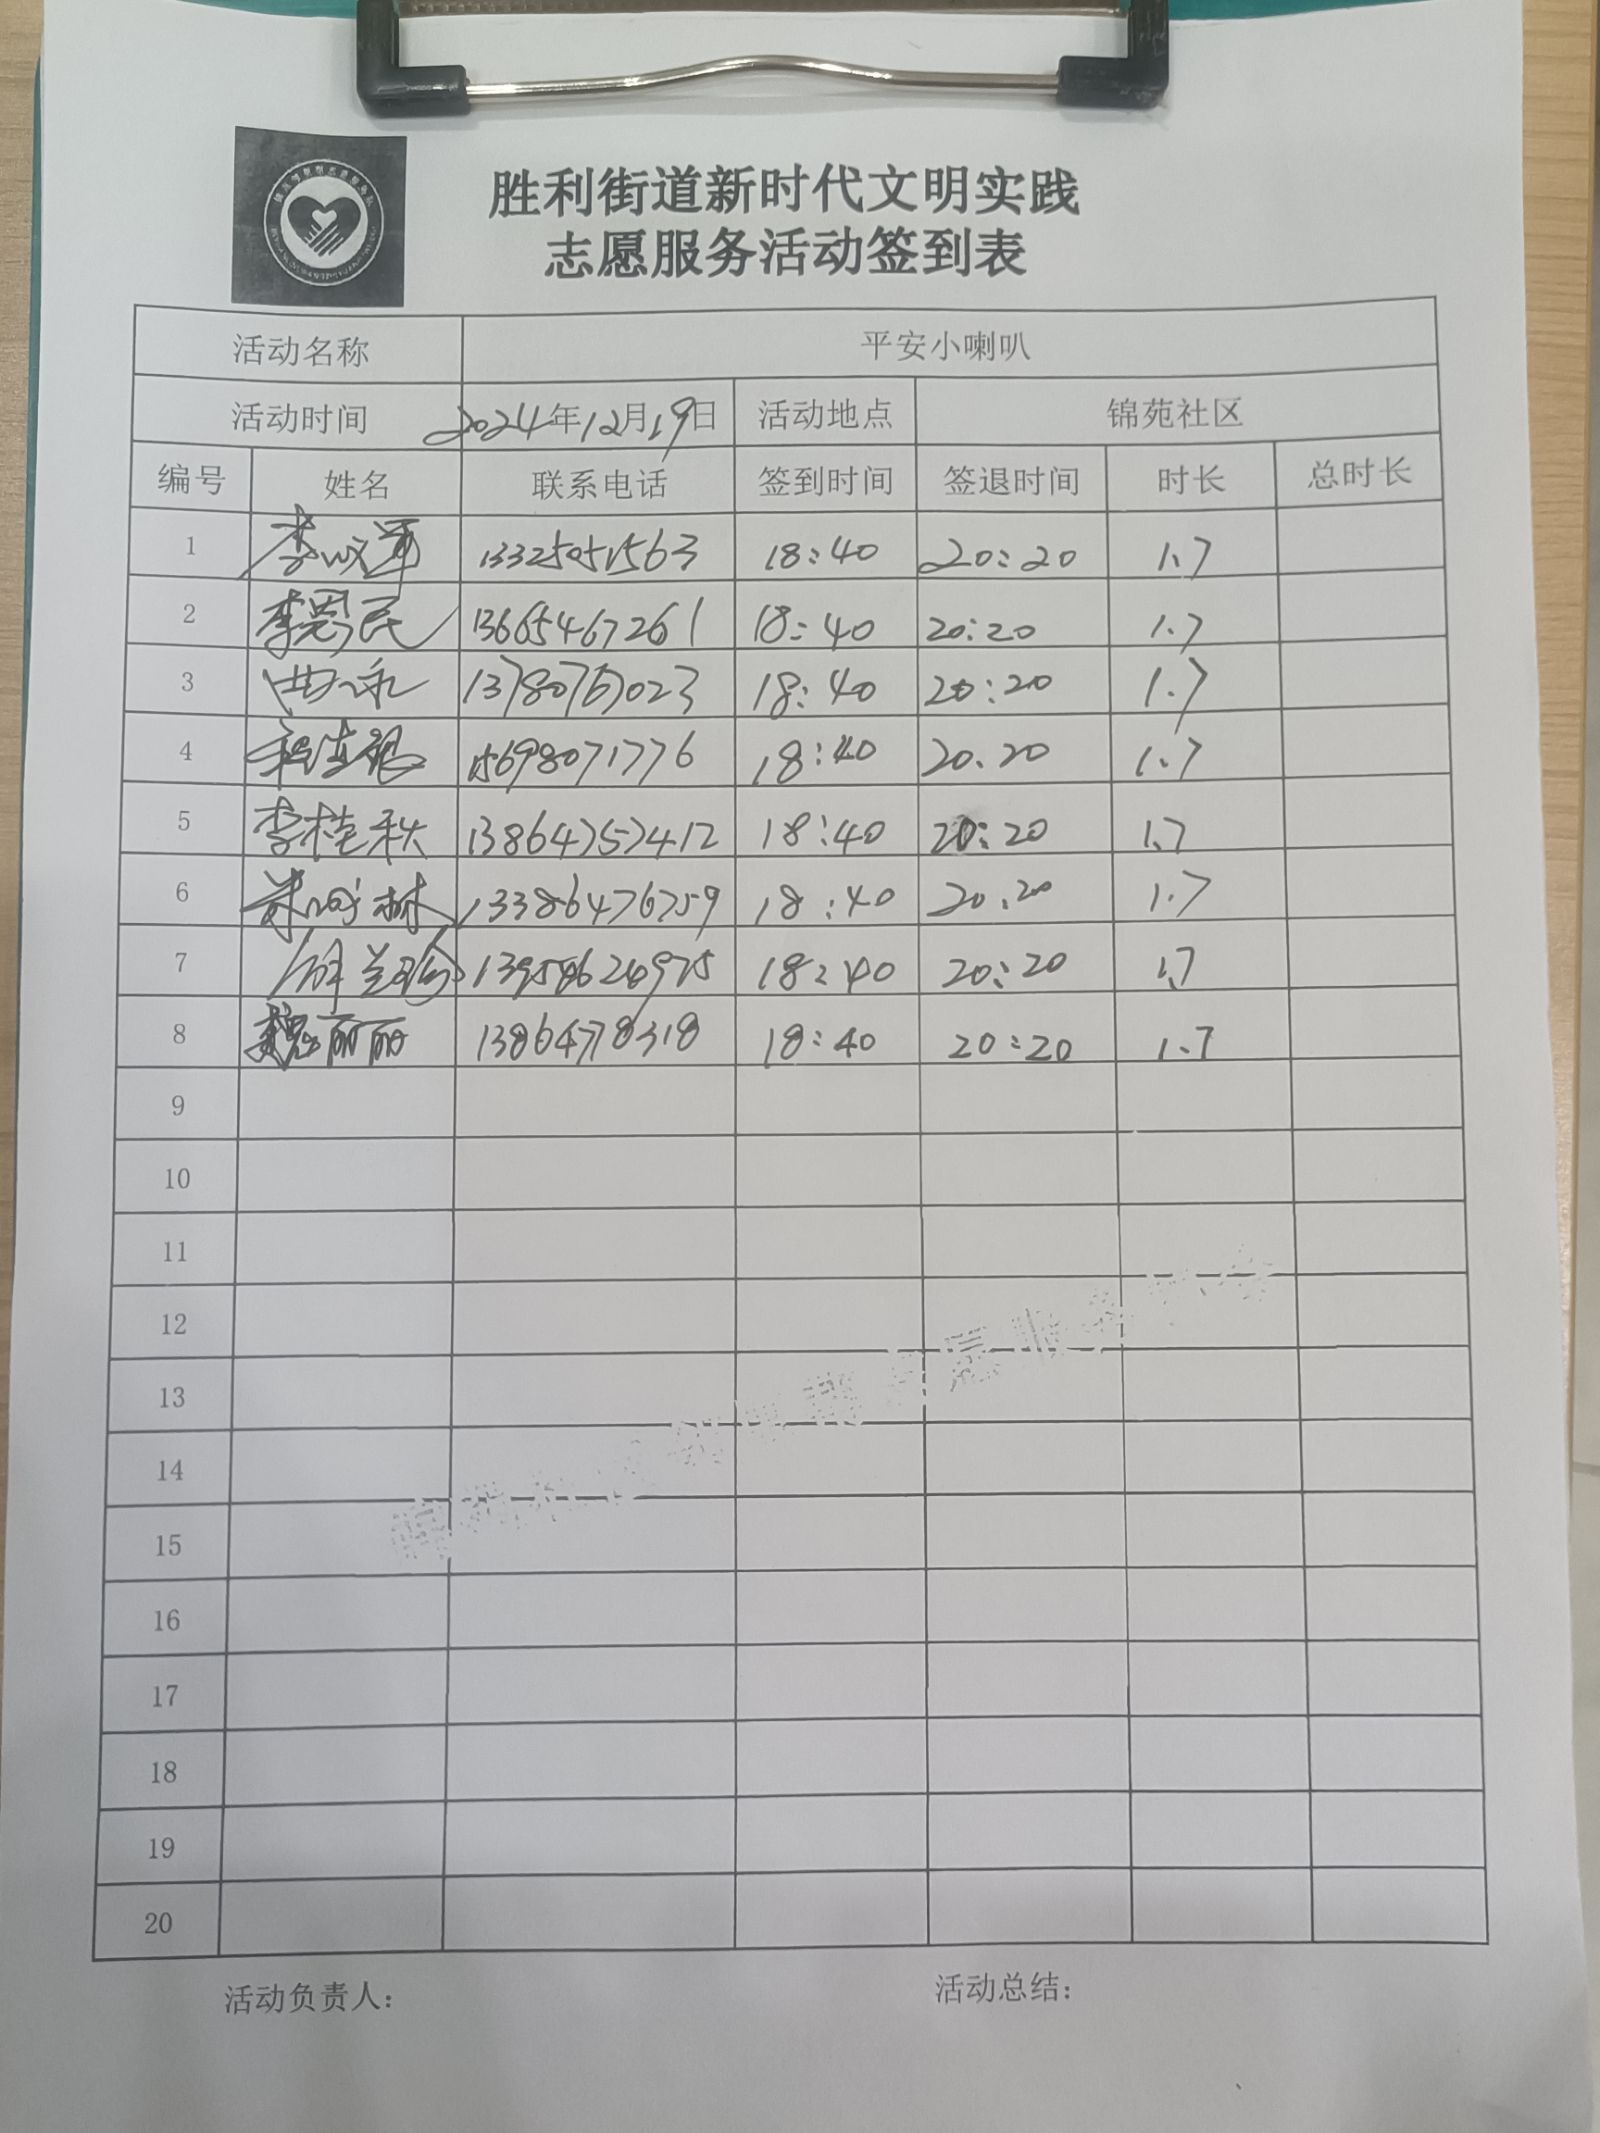 胜利街道新时代文明实践
志愿服务活动签到表
活动名称 平安小喇叭
活动时间 2024年12月19日 活动地点 锦苑社区
编号 姓名 联系电话 签到时间 签退时间 时长 总时长
1 13325051563 18:40 20:20 1.7
2 李恩民 13665467261 18:40 20:20 1.7
3 18:40 20:20 1.7
4 15698071776 18:40 20.20 1.7
5 李桂秋 13864757412 18:40 20:20 1.7
6 18:40 20.20 1.7
7 18:40 20:20 1.7
8 魏丽丽 13864778318 18:40 20:20 1.7
9
10
11
12
13
14
15
16
17
18
19
20
活动负责人： 活动总结：